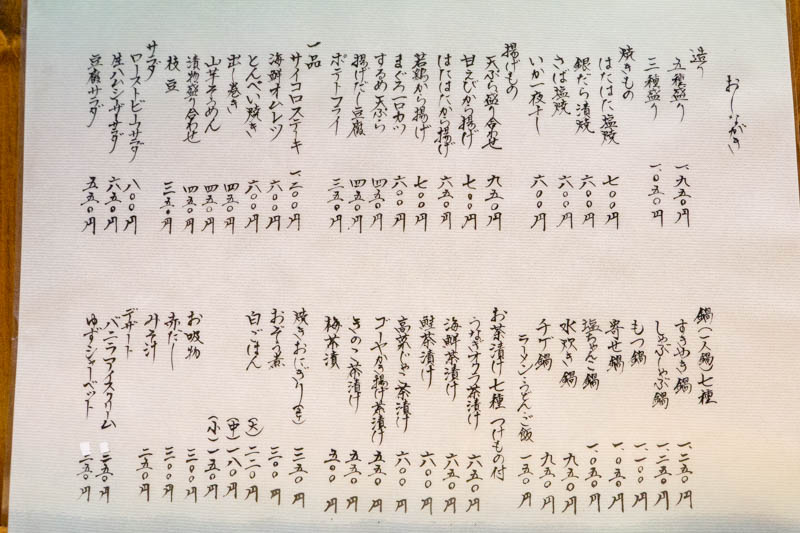 おしながき
造り
五種盛り 一、九五〇円
三種盛り 一、〇五〇円
焼きもの
はたはた塩焼 七〇〇円
銀だら漬焼 六〇〇円
さば塩焼 六〇〇円
いか一夜干し 六〇〇円
揚げもの
天ぷら盛り合わせ 九五〇円
甘えびから揚げ 七〇〇円
はたはたから揚げ 六五〇円
若鶏から揚げ 七〇〇円
まぐろ一口カツ 六〇〇円
するめ天ぷら 四五〇円
揚げだし豆腐 四五〇円
ポテトフライ 三五〇円
一品
サイコロステーキ 一、二〇〇円
海鮮オムレツ 六〇〇円
とんぺい焼き 六〇〇円
出し巻き 四五〇円
山芋そうめん 四五〇円
漬物盛り合わせ 四五〇円
枝豆 三五〇円
サラダ
ローストビーフサラダ 八〇〇円
生ハムシーザーサラダ 六五〇円
豆腐サラダ 五五〇円
鍋(一人鍋)七種
すきやき鍋 一、二五〇円
しゃぶしゃぶ鍋 一、二五〇円
もつ鍋 一、一〇〇円
寄せ鍋 一、〇五〇円
塩ちゃんこ鍋 一、〇五〇円
水炊き鍋 九五〇円
チゲ鍋 九五〇円
ラーメン・うどん・ご飯 一五〇円
お茶漬け七種 つけもの付
うなぎオクラ茶漬け 六五〇円
海鮮茶漬け 六五〇円
鮭茶漬け 六〇〇円
高菜じゃこ茶漬け 六〇〇円
ゴーヤかき揚げ茶漬け 五五〇円
きのこ茶漬け 五五〇円
梅茶漬 五〇〇円
焼きおにぎり 三五〇円
おぞう煮 三〇〇円
白ごはん (大) 二二〇円
(中) 一八〇円
(小) 一五〇円
お吸物 三〇〇円
赤だし 三〇〇円
みそ汁 二五〇円
デザート
バニラアイスクリーム 二五〇円
ゆずシャーベット 二五〇円